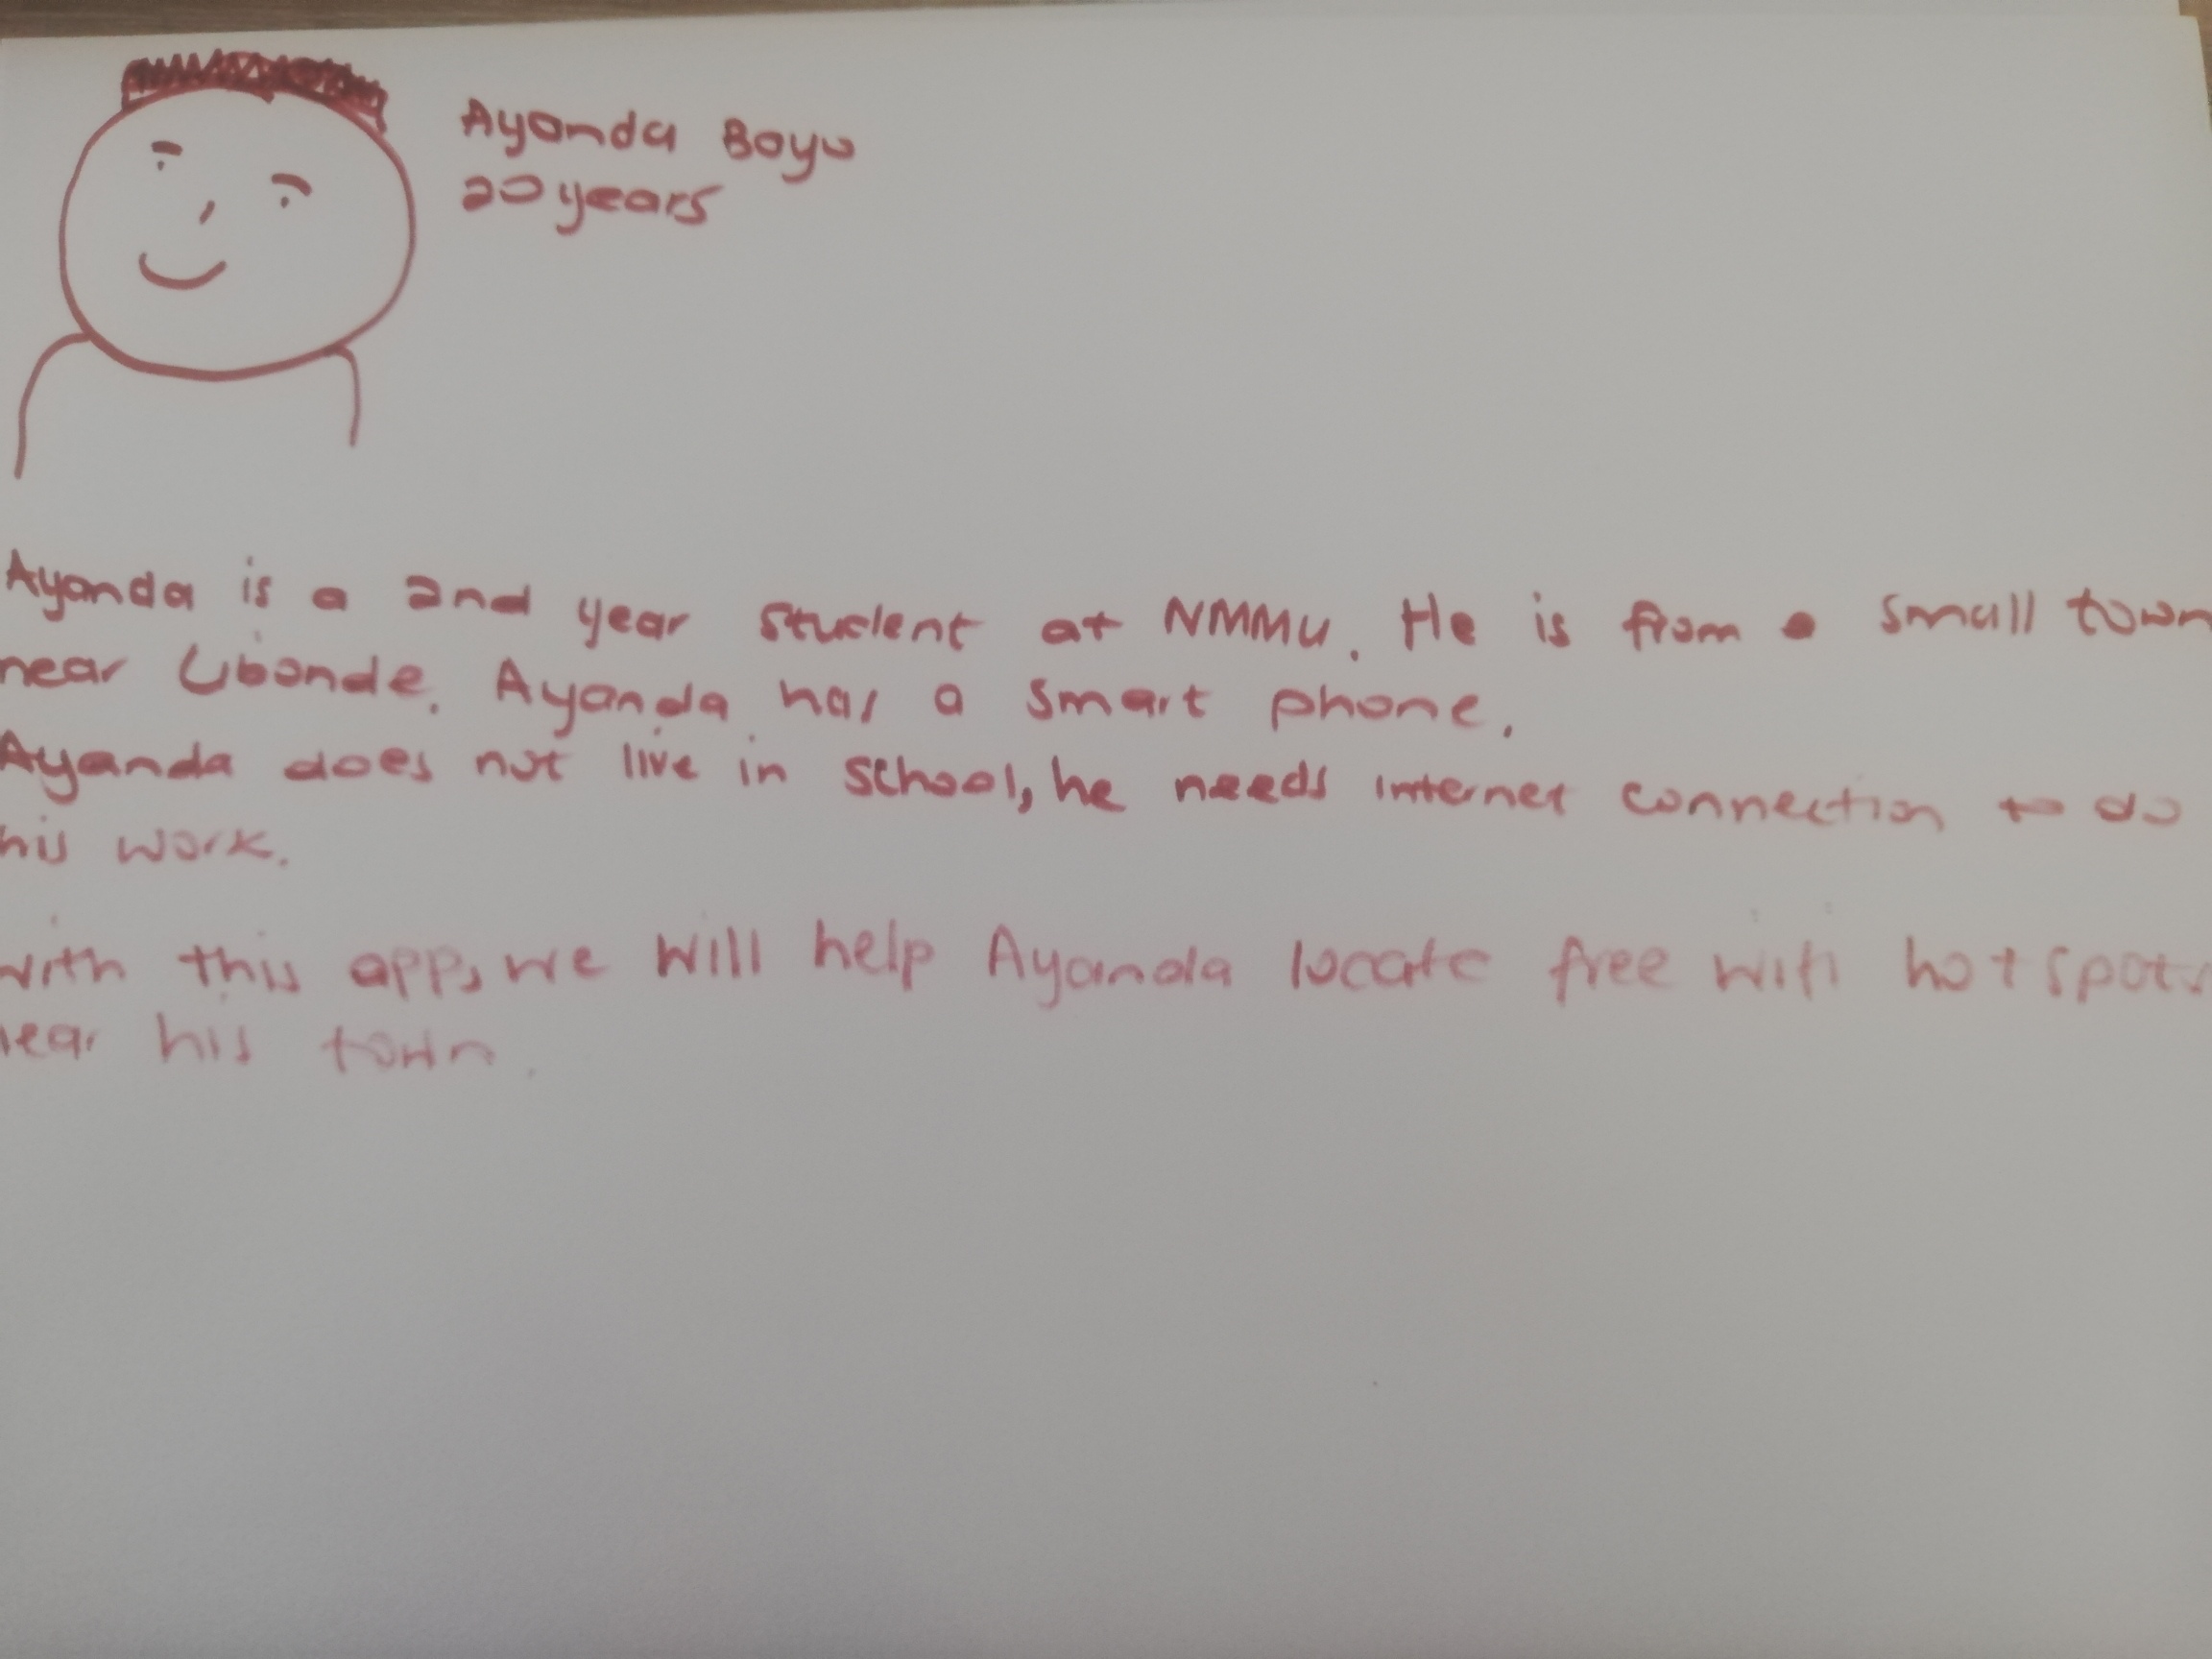 Ayanda Boyu
20 years
Ayanda is a 2nd year student at NMMU. He is from a small town
near Libonde. Ayanda has a smart phone.
Ayanda does not live in school, he needs internet connection to do
his work.
with this app, we will help Ayanda locate free wifi hotspots
near his town.